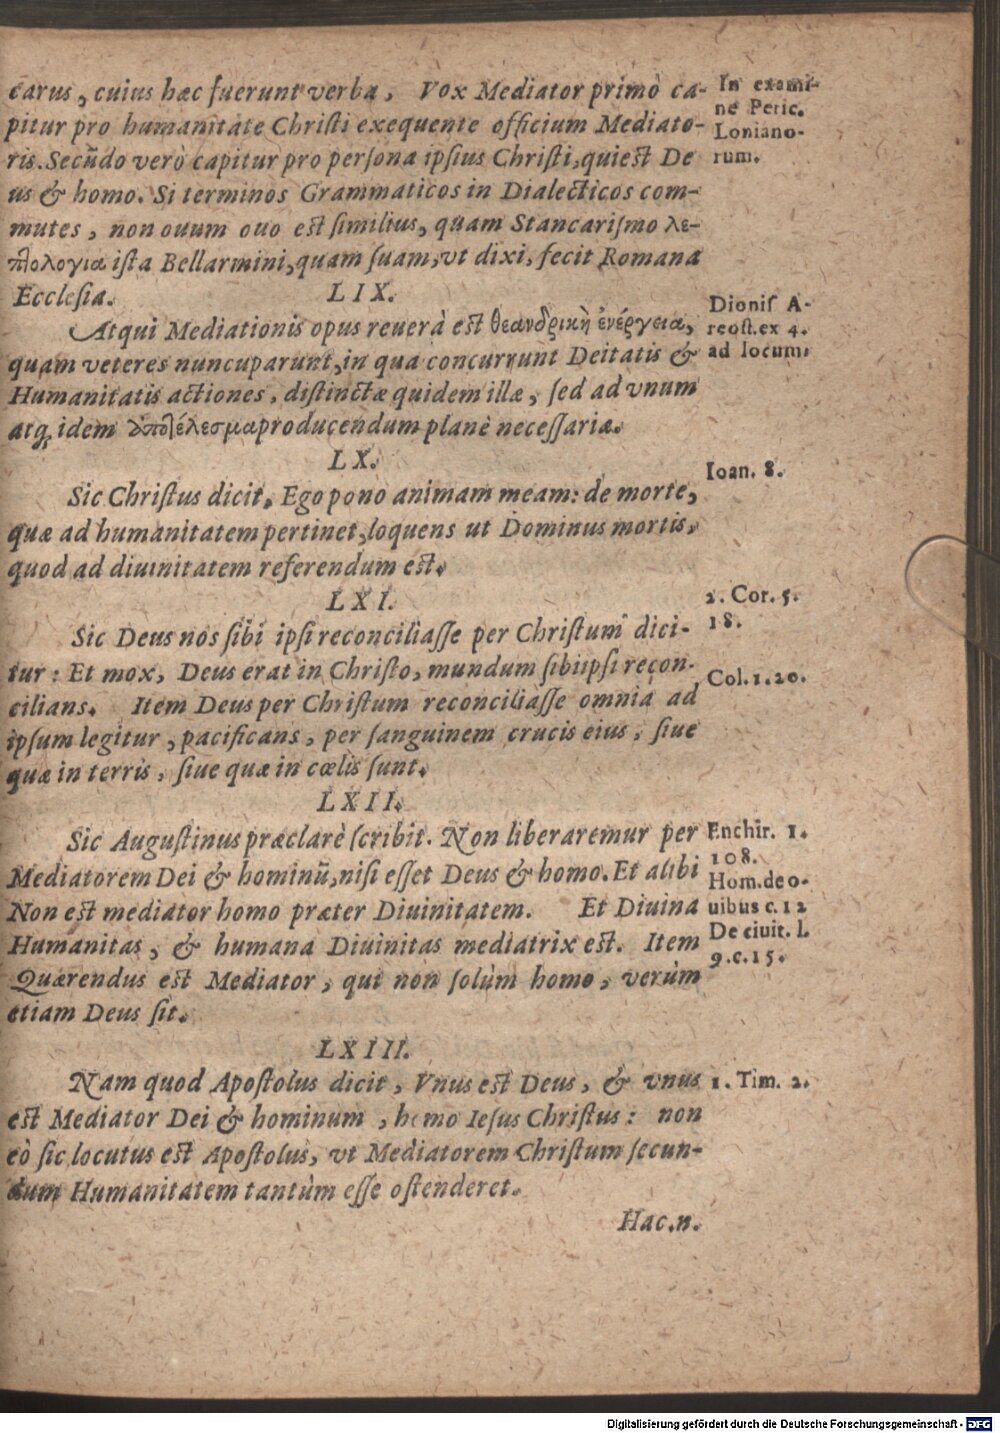 carus, cuius hæc fuerunt verba, Vox Mediator primò ca-
pitur pro humanitate Christi exequente officium Mediato-
ris. Secũdo verò capitur pro persona ipsius Christi, qui est De
us & homo. Si terminos Grammaticos in Dialecticos com-
mutes, non ouum ouo est similius, quam Stancarismo λε-
πλολογια ista Bellarmini, quam suam, vt dixi, fecit Romana
Ecclesia.
In exami-
ne Petic.
Loniano-
rum.
LIX.
Atqui Mediationis opus reuerà est θεανδρικὴ ἐνέργεια,
quam veteres nuncuparunt, in qua concurrunt Deitatis &
Humanitatis actiones, distinctæ quidem illæ, sed ad vnum
atq; idem ἀποτέλεσμα producendum planè necessariæ.
Dionis A-
reost. ex 4.
ad locum.
LX.
Sic Christus dicit, Ego pono animam meam: de morte,
quæ ad humanitatem pertinet, loquens ut Dominus mortis,
quod ad diuinitatem referendum est.
Ioan. 8.
LXI.
Sic Deus nos sibi ipsi reconciliasse per Christum dici-
tur: Et mox, Deus erat in Christo, mundum sibi ipsi recon-
cilians. Item Deus per Christum reconciliasse omnia ad
ipsum legitur, pacificans, per sanguinem crucis eius, siue
quæ in terris, siue quæ in cœlis sunt.
2. Cor. 5.
18.
Col. 1. 20.
LXII.
Sic Augustinus præclarè scribit. Non liberaremur per
Mediatorem Dei & hominũ, nisi esset Deus & homo. Et alibi
Non est mediator homo præter Diuinitatem. Et Diuina
Humanitas, & humana Diuinitas mediatrix est. Item
Quærendus est Mediator, qui non solùm homo, verùm
etiam Deus sit.
Enchir. 1.
108.
Hom. de o-
uibus c. 12
De ciuit. l.
9. c. 15.
LXIII.
Nam quod Apostolus dicit, Vnus est Deus, & vnus
est Mediator Dei & hominum, homo Iesus Christus: non
eò sic locutus est Apostolus, vt Mediatorem Christum secun-
dum Humanitatem tantùm esse ostenderet.
1. Tim. 2.
Hac. n.
Digitalisierung gefördert durch die Deutsche Forschungsgemeinschaft - DFG